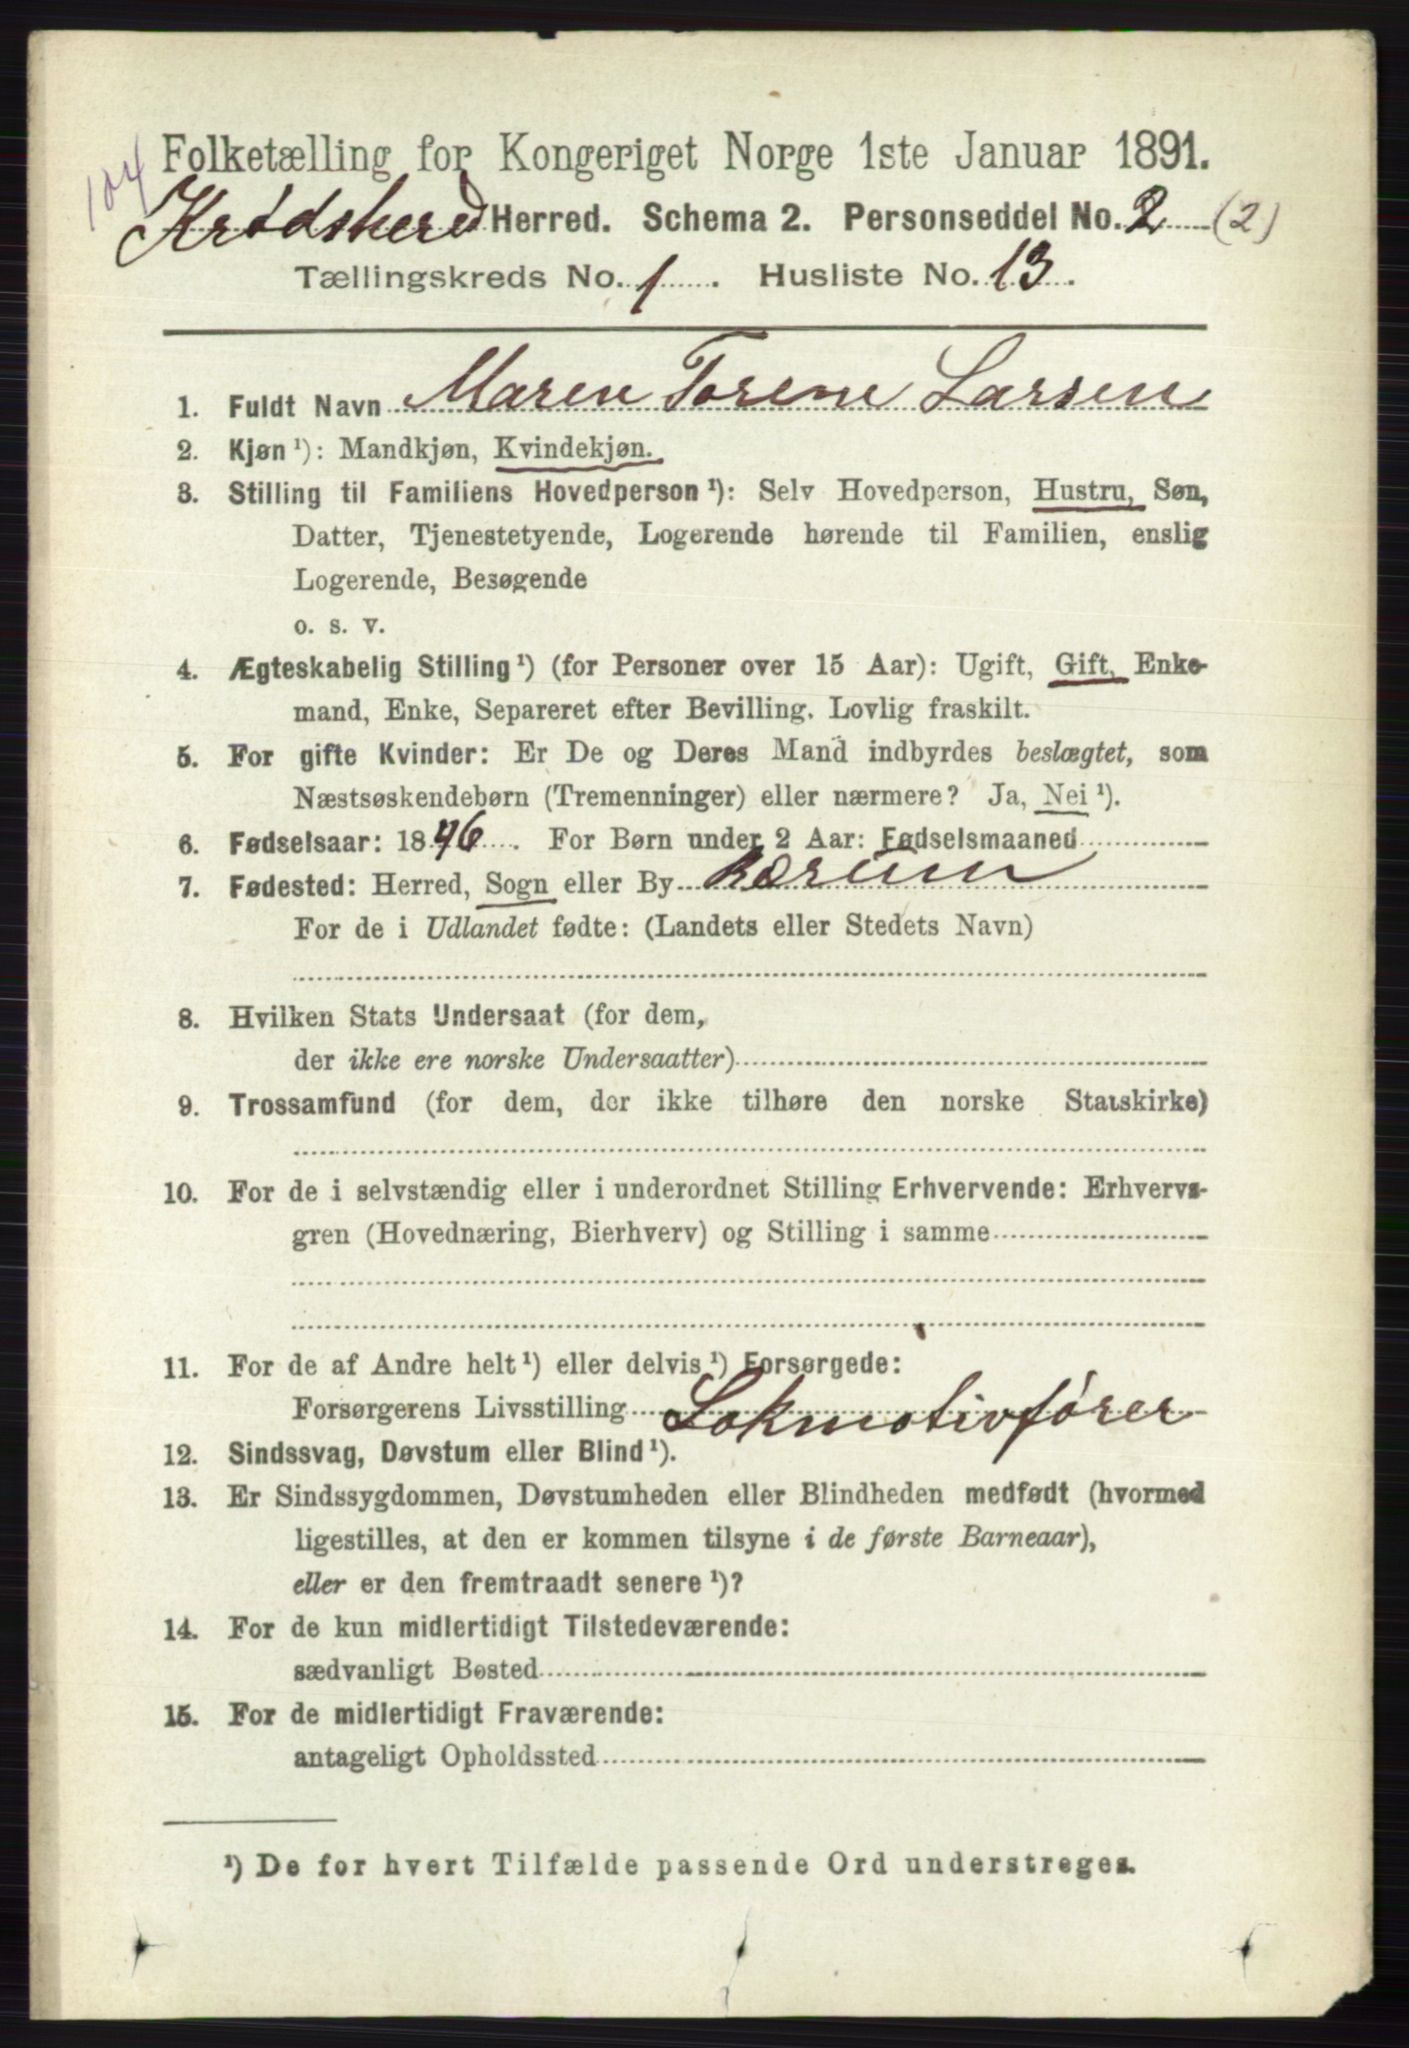 104
Folketælling for Kongeriget Norge 1ste Januar 1891.
Krødsherd Herred. Schema 2. Personseddel No. 2 (2)
Tællingskreds No. 1. Husliste No. 13.
1. Fuldt Navn Maren Torene Larsen
2. Kjøn ¹): Mandkjøn, Kvindekjøn.
3. Stilling til Familiens Hovedperson ¹): Selv Hovedperson, Hustru, Søn,
Datter, Tjenestetyende, Logerende hørende til Familien, enslig
Logerende, Besøgende
o. s. v.
4. Ægteskabelig Stilling ¹) (for Personer over 15 Aar): Ugift, Gift, Enke-
mand, Enke, Separeret efter Bevilling. Lovlig fraskilt.
5. For gifte Kvinder: Er De og Deres Mand indbyrdes beslægtet, som
Næstsøskendebørn (Tremenninger) eller nærmere? Ja, Nei ¹).
6. Fødselsaar: 1846. For Børn under 2 Aar: Fødselsmaaned
7. Fødested: Herred, Sogn eller By Bærum
For de i Udlandet fødte: (Landets eller Stedets Navn)
8. Hvilken Stats Undersaat (for dem,
der ikke ere norske Undersaatter)
9. Trossamfund (for dem, der ikke tilhøre den norske Statskirke)
10. For de i selvstændig eller i underordnet Stilling Erhvervende: Erhvervs-
gren (Hovednæring, Bierhverv) og Stilling i samme
11. For de af Andre helt ¹) eller delvis ¹) Forsørgede:
Forsørgerens Livsstilling Lokmotivfører
12. Sindssvag, Døvstum eller Blind ¹).
13. Er Sindssygdommen, Døvstumheden eller Blindheden medfødt (hvormed
ligestilles, at den er kommen tilsyne i de første Barneaar),
eller er den fremtraadt senere ¹)?
14. For de kun midlertidigt Tilstedeværende:
sædvanligt Bosted
15. For de midlertidigt Fraværende:
antageligt Opholdssted
¹) De for hvert Tilfælde passende Ord understreges.